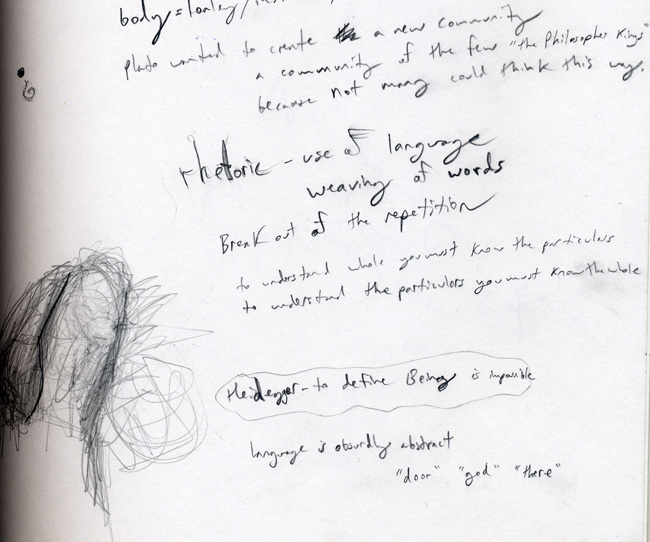 body =
Plato wanted to create a new community
a community of the few "the Philosopher Kings"
because not many could think this way.
rhetoric - use of language
weaving of words
Break out of the repetition
to understand whole you must know the particulars
to understand the particulars you must know the whole
Heidegger - to define Being is impossible
language is absurdly abstract
"door" "god" "there"